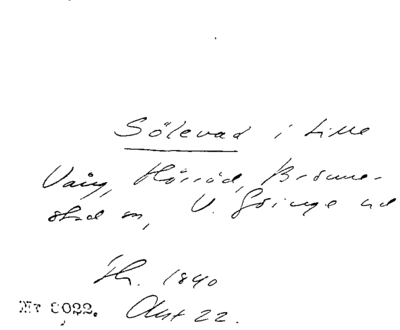 Sölevad i Lilla
Vång, Hörröd, Brönne-
stad sn, V. Göinge hd
Sk. 1840
Nr 8022. Akt 22.